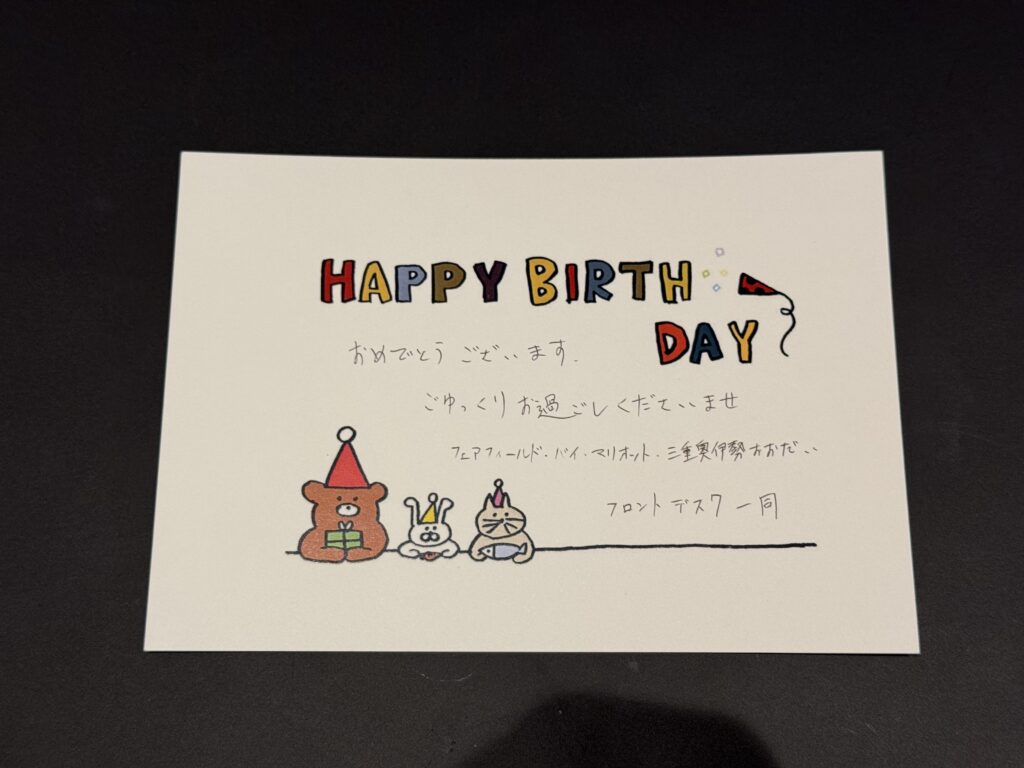 HAPPY BIRTH
DAY
おめでとうございます.
ごゆっくりお過ごしくださいませ
フェアフィールド・バイ・マリオット・三重奥伊勢おおだい
フロントデスク一同